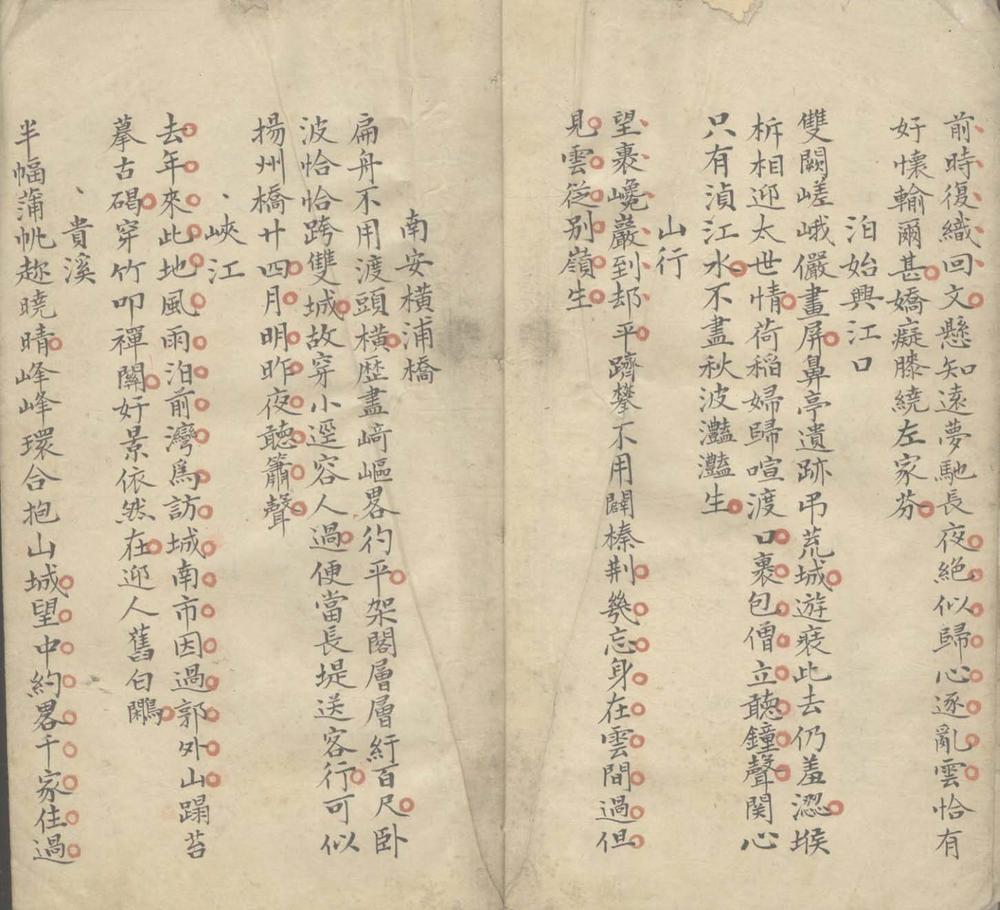 前時復織回文懸知遠夢馳長夜絕似歸心逐亂雲恰有
好懷輸爾甚嬌癡膝繞左家芬
泊始興江口
雙闕嵯峨儼畫屏鼻亭遺跡弔荒城遊裝此去仍羞澀堠
柝相迎太世情荷稻婦歸喧渡口裹包僧立聽鐘聲関心
只有湞江水不盡秋波灩灩生
山行
望裹巉巖到却平躋攀不用闢榛荆幾忘身在雲間過但
見雲從別嶺生
南安橫浦橋
扁舟不用渡頭橫歷盡﨑嶇畧彴平架閣層層紆百尺卧
波恰恰跨雙城故穿小逕容人過便當長堤送客行可似
揚州橋廿四月明昨夜聽簫聲
、峽江
去年來此地風雨泊前灣為訪城南市因過郭外山蹋苔
摹古碣穿竹叩禪關好景依然在迎人舊白鷳
、貴溪
半幅蒲帆趂曉晴峰峰環合抱山城望中約畧千家住過